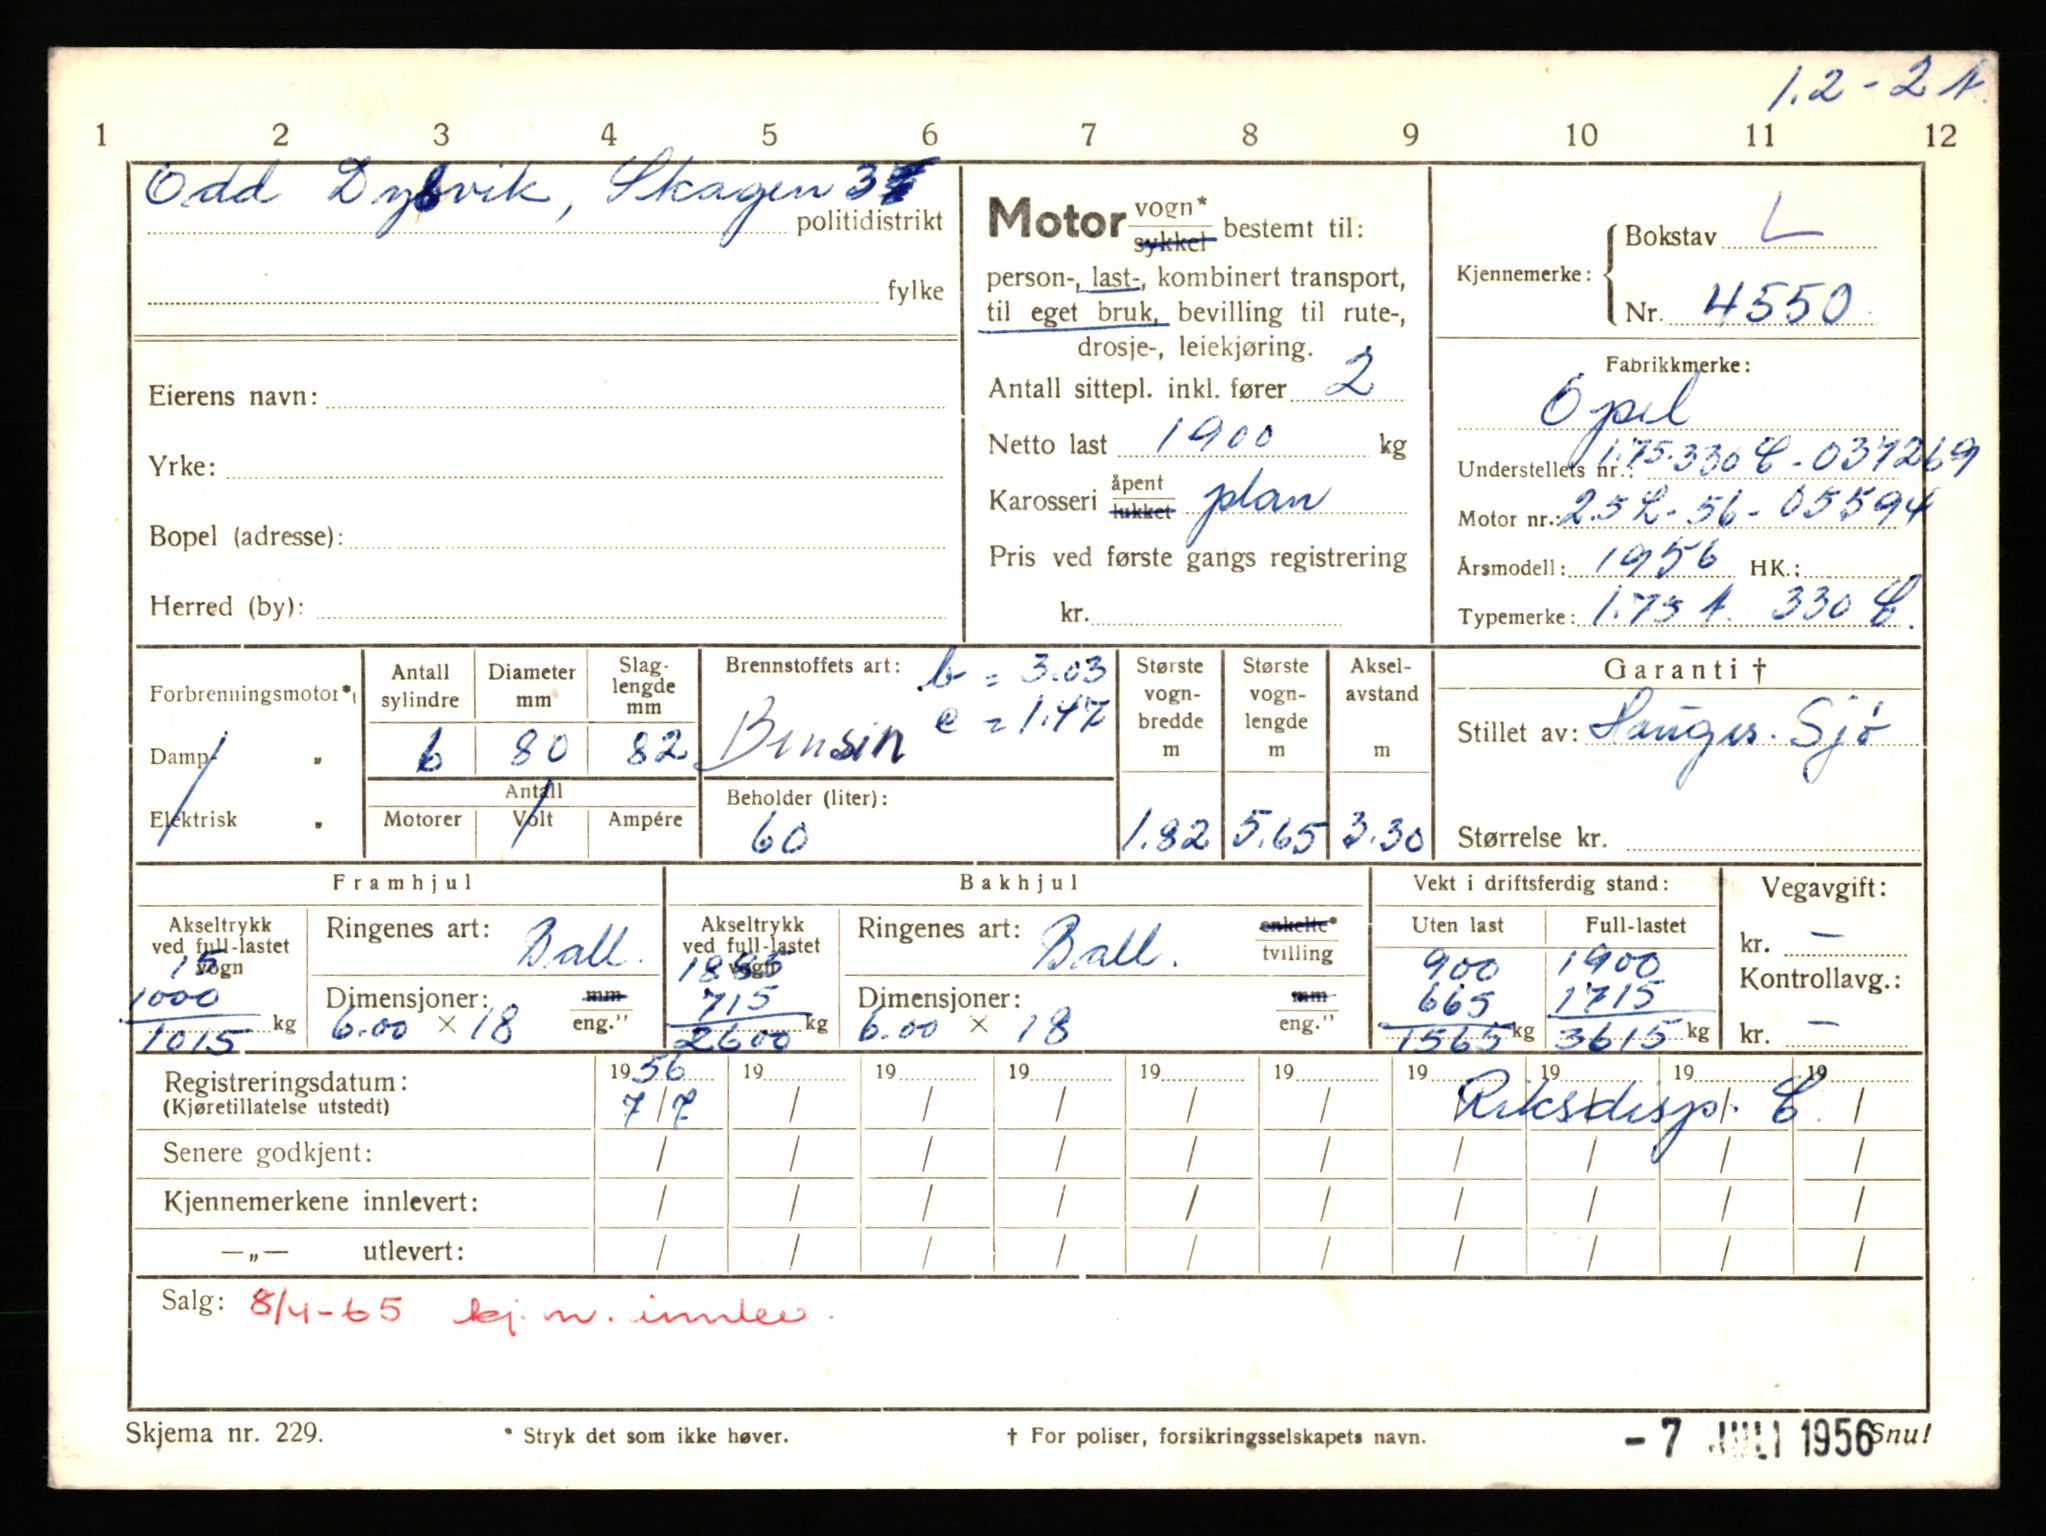 1.2 - 2 t.
1 2 3 4 5 6 7 8 9 10 11 12
Odd Dybvik, Skagen
politidistrikt
fylke
Eierens navn:
Yrke:
Bopel (adresse):
Herred (by):
Motor vogn* sykkel bestemt til:
person-, last-, kombinert transport,
til eget bruk, bevilling til rute-,
drosje-, leiekjøring.
Antall sittepl. inkl. fører 2
Netto last 1900 kg
Karosseri åpent lukket plan
Pris ved første gangs registrering
kr.
Kjennemerke: Bokstav L
Nr. 4550
Fabrikkmerke:
Opel
Understellets nr.: 1.75-330 C - 037269
Motor nr.: 2.5 L - 56 - 05594
Årsmodell: 1956 HK.:
Typemerke: 1.75 t. 330 C.
Forbrenningsmotor*)
Damp- "
Elektrisk "
Antall sylindre
6
Diameter mm
80
Slaglengde mm
82
Antall
Motorer Volt Ampére
Brennstoffets art: b = 3.03
Bensin e = 1.47
Beholder (liter):
60
Største vognbredde m
1.82
Største vognlengde m
5.65
Akselavstand m
3.30
Garanti †
Stillet av: Hauges. Sjø
Størrelse kr.
Framhjul
Akseltrykk ved full-lastet vogn
15
1000
1015 kg
Ringenes art: Ball.
Dimensjoner: mm
6.00 × 18 eng."
Bakhjul
Akseltrykk ved full-lastet vogn
1885
715
2600 kg
Ringenes art: Ball. enkelte* tvilling
Dimensjoner: mm
6.00 × 18 eng."
Vekt i driftsferdig stand:
Uten last
900
665
1565 kg
Full-lastet
1900
1715
3615 kg
Vegavgift:
kr. —
Kontrollavg.:
kr. —
Registreringsdatum: 1956 19 19 19 19 19 19 19 19 19
(Kjøretillatelse utstedt) 7/7 / / / / / / / / /
Riksdisp. C.
Senere godkjent: / / / / / / / / / /
Kjennemerkene innlevert: / / / / / / / / / /
—„— utlevert: / / / / / / / / / /
Salg: 8/4-65 kj. n. innlev.
Skjema nr. 229.
* Stryk det som ikke høver.
† For poliser, forsikringsselskapets navn.
- 7 JULI 1956
Snu!